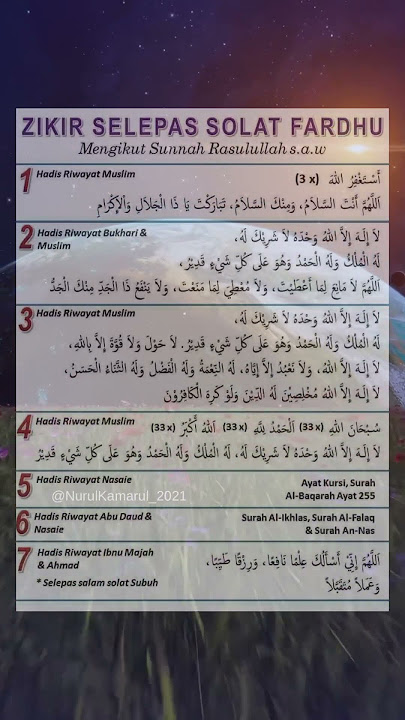 ZIKIR SELEPAS SOLAT FARDHU
Mengikut Sunnah Rasulullah s.a.w
1 Hadis Riwayat Muslim
أَسْتَغْفِرُ اللهَ (3 x)
اَللّٰهُمَّ أَنْتَ السَّلاَمُ، وَمِنْكَ السَّلاَمُ، تَبَارَكْتَ يَا ذَا الْجَلاَلِ وَاْلإِكْرَامِ
2 Hadis Riwayat Bukhari &
Muslim
لاَ إِلَـهَ إِلاَّ اللهُ وَحْدَهُ لاَ شَرِيْكَ لَهُ،
لَهُ الْمُلْكُ وَلَهُ الْحَمْدُ وَهُوَ عَلَى كُلِّ شَيْءٍ قَدِيْرٌ،
اَللّٰهُمَّ لاَ مَانِعَ لِمَا أَعْطَيْتَ، وَلاَ مُعْطِيَ لِمَا مَنَعْتَ، وَلاَ يَنْفَعُ ذَا الْجَدِّ مِنْكَ الْجَدُّ
3 Hadis Riwayat Muslim
لاَ إِلَـهَ إِلاَّ اللهُ وَحْدَهُ لاَ شَرِيْكَ لَهُ،
لَهُ الْمُلْكُ وَلَهُ الْحَمْدُ وَهُوَ عَلَى كُلِّ شَيْءٍ قَدِيْرٌ. لاَ حَوْلَ وَلاَ قُوَّةَ إِلاَّ بِاللهِ،
لاَ إِلَـهَ إِلاَّ اللهُ، وَلاَ نَعْبُدُ إِلاَّ إِيَّاهُ، لَهُ النِّعْمَةُ وَلَهُ الْفَضْلُ وَلَهُ الثَّنَاءُ الْحَسَنُ،
لاَ إِلَـهَ إِلاَّ اللهُ مُخْلِصِيْنَ لَهُ الدِّيْنَ وَلَوْ كَرِهَ الْكَافِرُوْنَ
4 Hadis Riwayat Muslim
سُبْحَانَ اللهِ (33 x) اَلْحَمْدُ لِلَّهِ (33 x) اَللهُ أَكْبَرُ (33 x)
لاَ إِلَـهَ إِلاَّ اللهُ وَحْدَهُ لاَ شَرِيْكَ لَهُ، لَهُ الْمُلْكُ وَلَهُ الْحَمْدُ وَهُوَ عَلَى كُلِّ شَيْءٍ قَدِيْرٌ
5 Hadis Riwayat Nasaie
Ayat Kursi, Surah
Al-Baqarah Ayat 255
@NurulKamarul_2021
6 Hadis Riwayat Abu Daud &
Nasaie
Surah Al-Ikhlas, Surah Al-Falaq
& Surah An-Nas
7 Hadis Riwayat Ibnu Majah
& Ahmad
* Selepas salam solat Subuh
اَللّٰهُمَّ إِنِّيْ أَسْأَلُكَ عِلْمًا نَافِعًا، وَرِزْقًا طَيِّبًا،
وَعَمَلاً مُتَقَبَّلاً